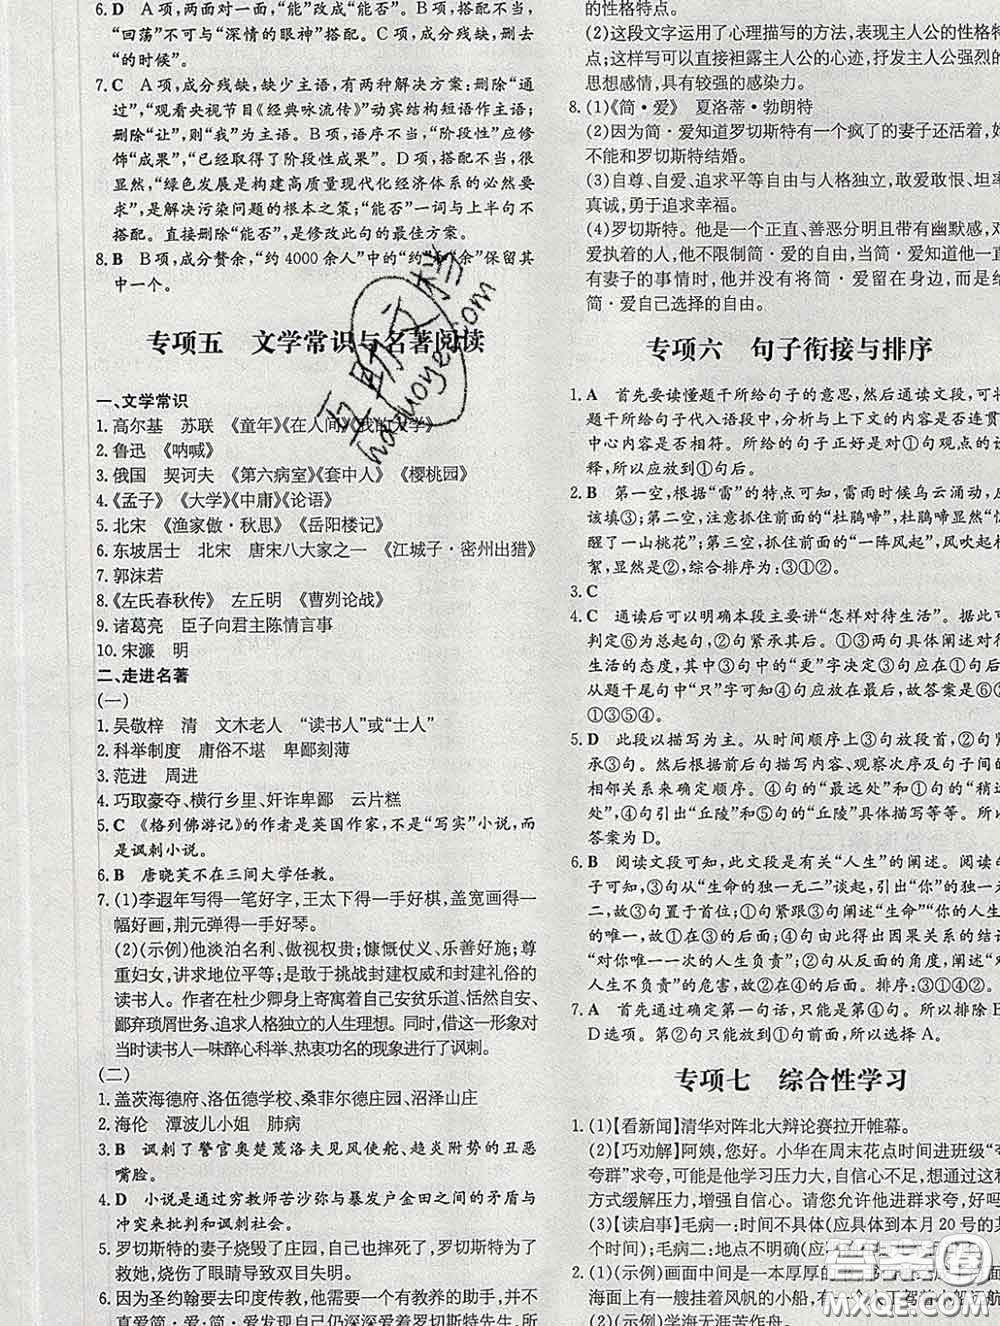 6. D　A项,两面对一面,“能”改成“能否”。B项,搭配不当,
“回荡”不可与“深情的眼神”搭配。C项,成分残缺,删去
“的时候”。
7. C　A项,成分残缺,缺少主语,有两种解决方案:删除“通
过”,“观看央视节目《经典咏流传》”动宾结构短语作主语;
删除“让”,则“我”为主语。B项,语序不当,“阶段性”应修
饰“成果”,“已经取得了阶段性成果”。D项,搭配不当,很
显然,“绿色发展是构建高质量现代化经济体系的必然要
求”,是解决污染问题的根本之策;“能否”一词与上半句不
搭配。直接删除“能否”,是修改此句的最佳方案。
8. B　B项,成分赘余,“约4000余人”中的“约”和“余”保留其
中一个。
专项五　文学常识与名著阅读
一、文学常识
1. 高尔基　苏联　《童年》《在人间》《我的大学》
2. 鲁迅　《呐喊》
3. 俄国　契诃夫　《第六病室》《套中人》　《樱桃园》
4. 《孟子》　《大学》《中庸》《论语》
5. 北宋　《渔家傲·秋思》　《岳阳楼记》
6. 东坡居士　北宋　唐宋八大家之一　《江城子·密州出猎》
7. 郭沫若
8. 《左氏春秋传》　左丘明　《曹刿论战》
9. 诸葛亮　臣子向君主陈情言事
10. 宋濂　明
二、走进名著
(一)
1. 吴敬梓　清　文木老人　“读书人”或“士人”
2. 科举制度　庸俗不堪　卑鄙刻薄
3. 范进　周进
4. 巧取豪夺、横行乡里、奸诈卑鄙　云片糕
5. C　《格列佛游记》的作者是英国作家,不是“写实”小说,而
是讽刺小说。
6. B　唐晓芙不在三闾大学任教。
7. (1)李遐年写得一笔好字,王太下得一手好棋,盖宽画得一
幅好画,荆元弹得一手好琴。
(2)(示例)他淡泊名利、傲视权贵;慷慨仗义、乐善好施;尊
重妇女,讲求地位平等;是敢于挑战封建权威和封建礼俗的
读书人。作者在杜少卿身上寄寓着自己安贫乐道、恬然自安、
鄙弃琐屑世务、追求人格独立的人生理想。同时,借这一形象对
当时读书人一味醉心科举、热衷功名的现象进行了讽刺。
(二)
1. 盖茨海德府、洛伍德学校、桑菲尔德庄园、沼泽山庄
2. 海伦　潭波儿小姐　肺病
3. B　讽刺了警官奥楚蔑洛夫见风使舵、趋炎附势的丑恶
嘴脸。
4. D　小说是通过穷教师苦沙弥与暴发户金田之间的矛盾与
冲突来批判和讽刺社会。
5. 罗切斯特的妻子烧毁了庄园,自己也摔死了,罗切斯特为了
救她,烧伤了眼睛导致双目失明。
6. 因为圣约翰要去印度传教,他需要一个有教养的助手,并非
真爱简·爱,简·爱发现自己仍深深爱着罗切斯特先生,所
的性格特点。
(2)这段文字运用了心理描写的方法,表现主人公的性格特
点;这样写可以直接袒露主人公的心迹,抒发主人公强烈的
思想感情,具有较强的感染力。
8. (1)《简·爱》　夏洛蒂·勃朗特
(2)因为简·爱知道罗切斯特有一个疯了的妻子还活着,
不能和罗切斯特结婚。
(3)自尊、自爱、追求平等自由与人格独立,敢爱敢恨、坦率
真诚,勇于追求幸福。
(4)罗切斯特。他是一个正直、善恶分明且带有幽默感,对
爱执着的人,他不限制简·爱的自由,当简·爱知道
有妻子的事情时,他并没有将简·爱留在身边,而是给
简·爱自己选择的自由。
专项六　句子衔接与排序
1. A　首先要读懂题干所给句子的意思,然后通读文段,可将
题干所给句子代入语段中,分析与上下文的内容是否连贯
中心内容是否相符。所给的句子正好是对①句观点的
释,所以应放到①句后。
2. B　第一空,根据“雷”的特点可知,雷雨时候乌云涌动,
该填③;第二空,注意抓住前面的“杜鹃啼”,杜鹃啼显然“
醒了一山桃花”;第三空,抓住前面的“一阵风起”,风吹起
絮,显然是②,综合排序为:③①②。
3. C
4. C　通读后可以明确本段主要讲“怎样对待生活”。据此可
判定⑥为总起句,②句紧承其后。①③两句具体阐述对待
生活的态度,其中③句中的“更”字决定③句应在①句后。
从题干尾句中“只”字可知④句应放在最后,故答案是⑥②
①③⑤④。
5. D　此段以描写为主。从时间顺序上③句放段首,②句紧
承③后。然后根据前后句描写内容、观察次序及句子间的
相邻关系来确定顺序。④句的“最远处”和①句的“稍近
处”,④句引出“丘陵”和⑤句的“丘陵”具体描写等等。所以
答案为D。
6. B　阅读文段可知,此文段是有关“人生”的阐述。阅读
子可知,③句从“生命的独一无二”谈起,引出“你”的独一无
二,故③句置于首位;①句紧跟③句阐述“生命”“你的人生”
的唯一,放在③的后面;④句由此得出因果关系的结论
“对你唯一一次的人生负责”;②句从反面的角度,阐述“对
人生不负责”的危害,放在④的后面。排序:③①④②。
7. A　首先通过确定第一句话,只能是第④句。所以排除B、
D选项。第②句只能放到①句前面,所以选择A。
专项七　综合性学习
1. (1)【看新闻】清华对阵北大辩论赛拉开帷幕。
(2)【巧劝解】阿姨,您好。小华在周末花点时间进班级“夸
夸群”求夸,可能是他学习压力大,自信心不足,想通过这种
方式缓解压力,增强自信心。请您允许他进群求夸,好吗
(3)【读启事】毛病一:时间不具体(应具体到本月20号的
个时间);毛病二:地点不明确
2. (1)(示例)画面中间是一本厚厚的
海面上有一艘挂着风帆的小船,
(2)(示例)学海无涯苦作舟。
百助文档
haduoyejie.com
答案圈
MXQE.COM